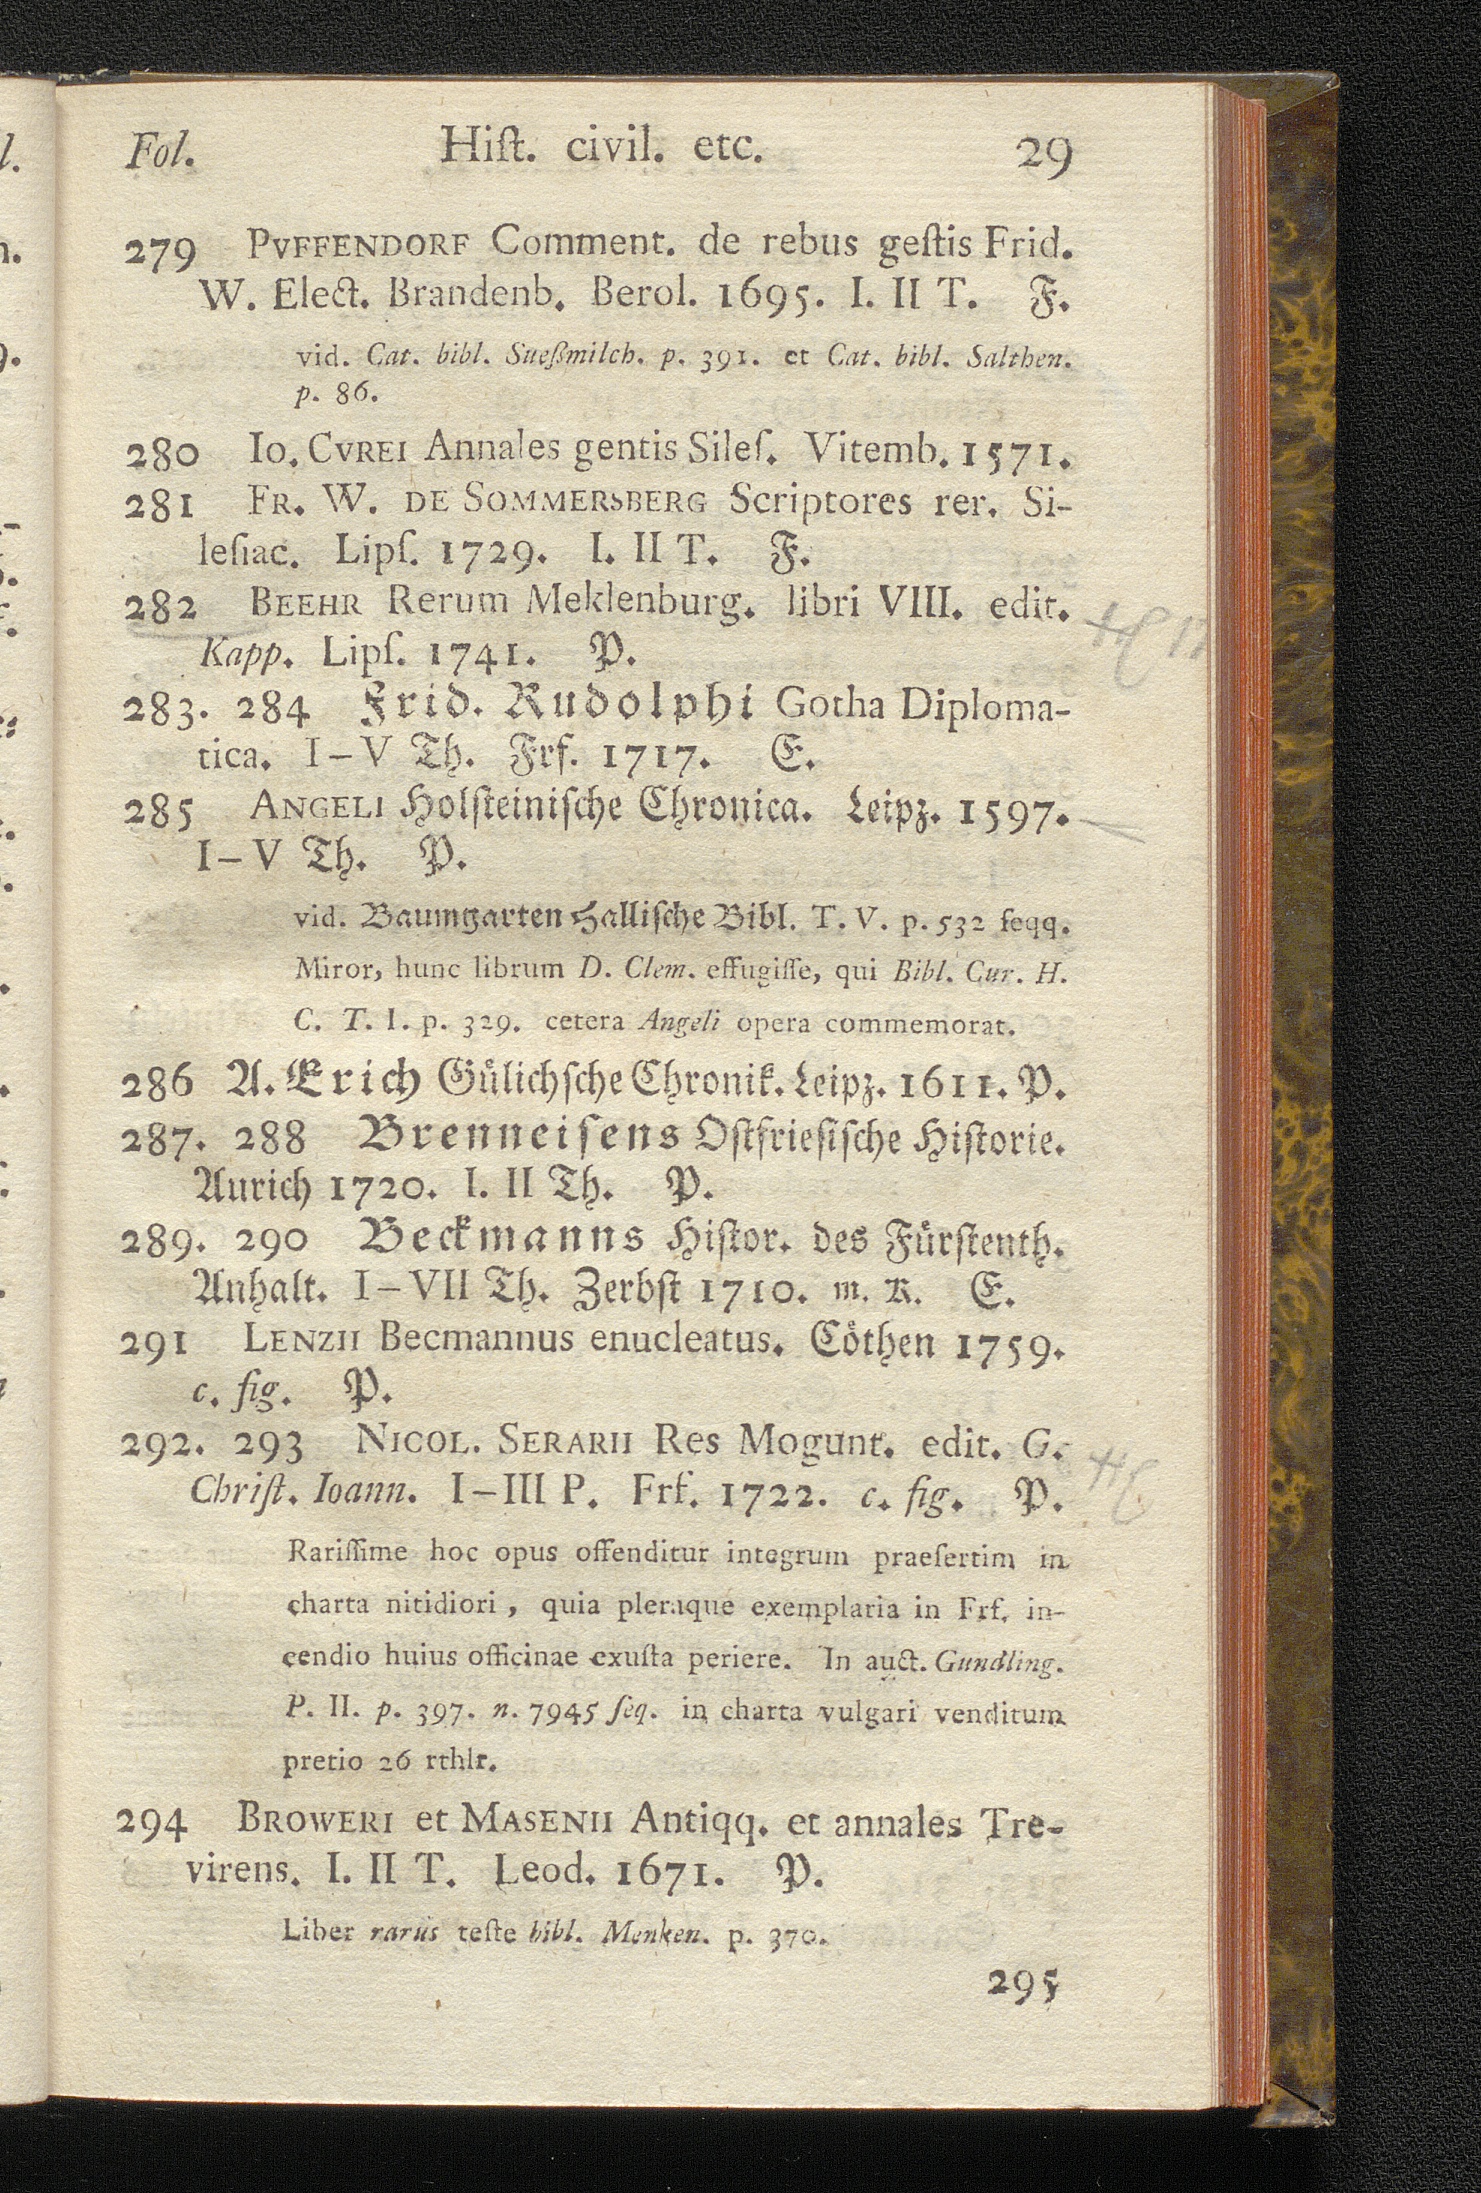 Fol. Hiſt. civil. etc. 29
279 PVFFENDORF Comment. de rebus geſtis Frid.
W. Elect. Brandenb. Berol. 1695. I. II T. F.
vid. Cat. bibl. Sueßmilch. p. 391. et Cat. bibl. Salthen.
p. 86.
280 Io. CVREI Annales gentis Sileſ. Vitemb. 1571.
281 FR. W. DE SOMMERSBERG Scriptores rer. Si-
leſiac. Lipſ. 1729. I. II T. F.
282 BEEHR Rerum Meklenburg. libri VIII. edit.
Kapp. Lipſ. 1741. P.
283. 284 Frid. Rudolphi Gotha Diploma-
tica. I–V Th. Frf. 1717. E.
285 ANGELI Holſteiniſche Chronica. Leipz. 1597.
I–V Th. P.
vid. Baumgarten Halliſche Bibl. T. V. p. 532 ſeqq.
Miror, hunc librum D. Clem. effugiſſe, qui Bibl. Cur. H.
C. T. I. p. 329. cetera Angeli opera commemorat.
286 A. Erich Gülichſche Chronik. Leipz. 1611. P.
287. 288 Brenneiſens Oſtfrieſiſche Hiſtorie.
Aurich 1720. I. II Th. P.
289. 290 Beckmanns Hiſtor. des Fürſtenth.
Anhalt. I–VII Th. Zerbſt 1710. m. K. E.
291 LENZII Becmannus enucleatus. Cöthen 1759.
c. fig. P.
292. 293 NICOL. SERARII Res Mogunt. edit. G.
Chriſt. Ioann. I–III P. Frf. 1722. c. fig. P.
Rariſſime hoc opus offenditur integrum praeſertim in
charta nitidiori, quia pleraque exemplaria in Frf. in-
cendio huius officinae exuſta periere. In auct. Gundling.
P. II. p. 397. n. 7945 ſeq. in charta vulgari venditum
pretio 26 rthlr.
294 BROWERI et MASENII Antiqq. et annales Tre-
virens. I. II T. Leod. 1671. P.
Liber rarus teſte bibl. Menken. p. 370.
295